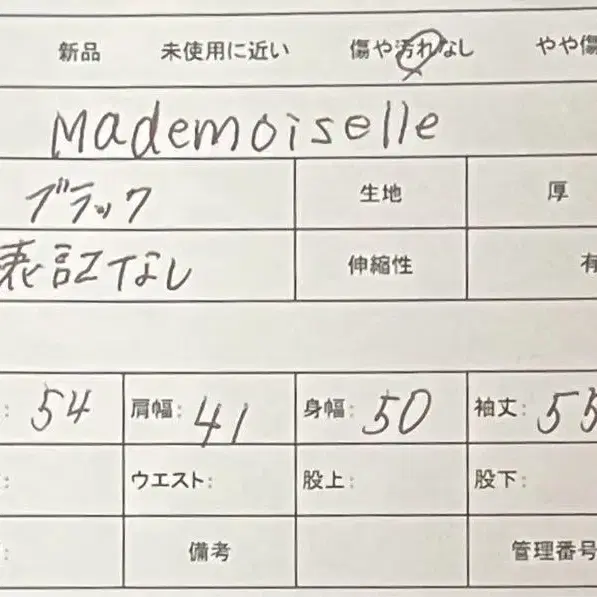 新品 未使用に近い 傷や汚れなし やや傷
Mademoiselle
ブラック 生地 厚
表記なし 伸縮性 有
: 54 肩幅: 41 身幅: 50 袖丈: 55
: ウエスト: 股上: 股下:
: 備考 管理番号